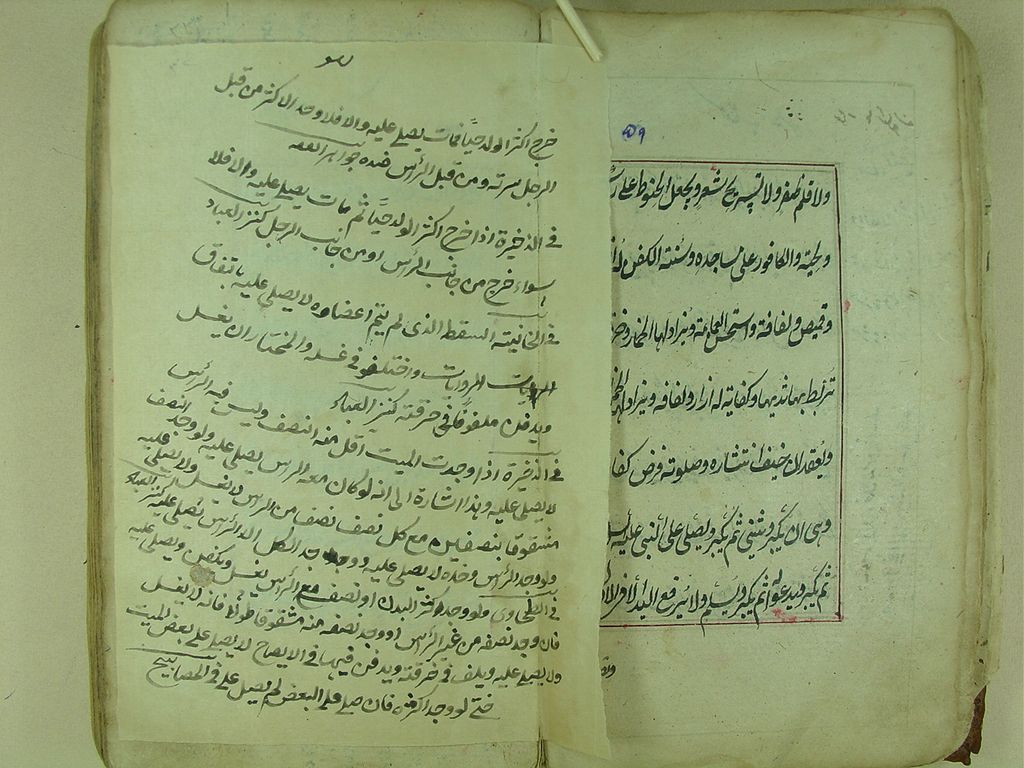 ٥٩
ولا قلم ظفر ولا تسريح شعر ويجعل الحنوط على
ولحيته والكافور على مساجده وسنته الكفن له
وقميص ولفافة واستحسن العمامة ويزاد لها الخمار
تربط بها ثدييها وكفاية له ازار ولفافة ويزاد لها
ويعقد ان خيف انتشاره وصلوته فرض
وهي ان يكبر ويثني ثم يكبر ويصلي على النبي عليه
ثم يكبر ويدعو له ثم يكبر ويسلم ولا يرفع اليد الا في
خرج اكثر الولد حيا فمات يصلى عليه والا فلا وحد الاكثر من قبل
الرجل سرته ومن قبل الرأس جواهر الفقه
في الذخيرة اذا خرج اكثر الولد حيا ثم مات يصلى عليه والا فلا
سواء خرج من جانب الرأس او من جانب الرجل كنز العباد
في الخانية السقط الذي لم يتم اعضاوه لا يصلى عليه باتفاق
الروايات واختلفو في غسله والمختار ان يغسل
ويدفن ملفوفا في خرقته كنز العباد
في الذخيرة اذا وجدت الميت اقل من النصف وليس فيه الرأس
لا يصلى عليه وهذا اشارة الى انه لو كان معه الراس يصلى عليه ولو وجد النصف
مشقوقا بنصفين مع كل نصف نصف من الراس لا يغسل ولا يصلى عليه
ولو وجد الرأس وحده لا يصلى عليه ولو وجد الكل الا الرأس يصلى عليه كنز العباد
في الطحاوي ولو وجد اكثر البدن او نصف مع الرأس يغسل ويكفن ويصلى عليه
فان وجد نصفه من غير الرأس او وجد نصفه منه مشقوقا طولا فانه لا يغسل
ولا يصلى عليه ويلف في خرقته ويدفن فيها في الايضاح لا يصلى على بعض الميت
حتى لو وجد اكثره فان صلى على البعض لم يصل على في المصابيح